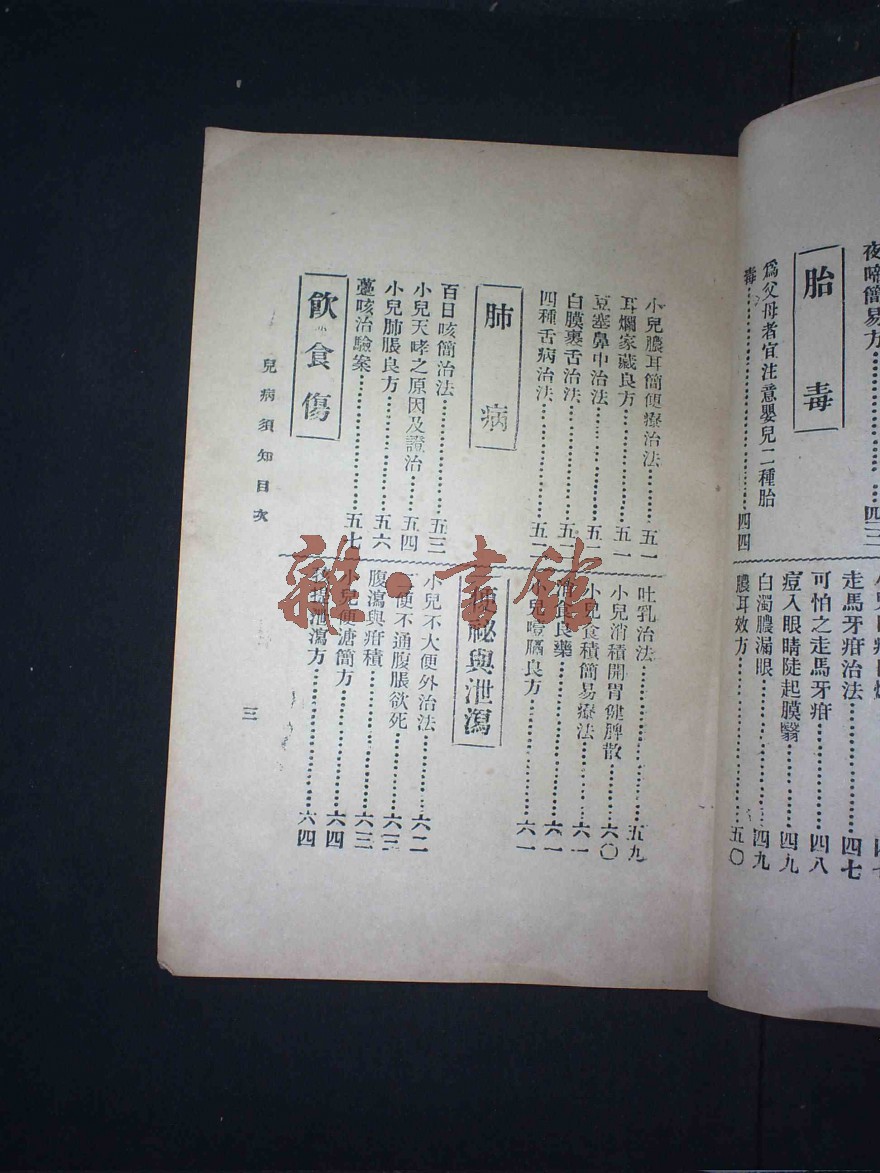 夜啼簡易方……四三
胎毒
爲父母者宜注意嬰兒二種胎
毒……四四
走馬牙疳治法……四七
可怕之走馬牙疳……四八
痘入眼睛陡起膜翳……四九
白濁膿漏眼……四九
膿耳效方……五〇
小兒膿耳簡便療治法……五一
耳爛家藏良方……五一
豆塞鼻中治法……五一
白膜裹舌治法……五二
四種舌病治法……五二
肺病
百日咳簡治法……五三
小兒天哮之原因及證治……五四
小兒肺脹良方……五六
蠆咳治驗案……五七
飲食傷
吐乳治法……五九
小兒消積開胃健脾散……六〇
小兒食積簡易療法……六一
食良藥……六一
小兒噎膈良方……六一
便祕與泄瀉
小兒不大便外治法……六二
便不通腹脹欲死……六三
腹瀉與疳積……六三
小兒便溏簡方……六四
泄瀉方……六四
兒病須知目次
三
雜·書館